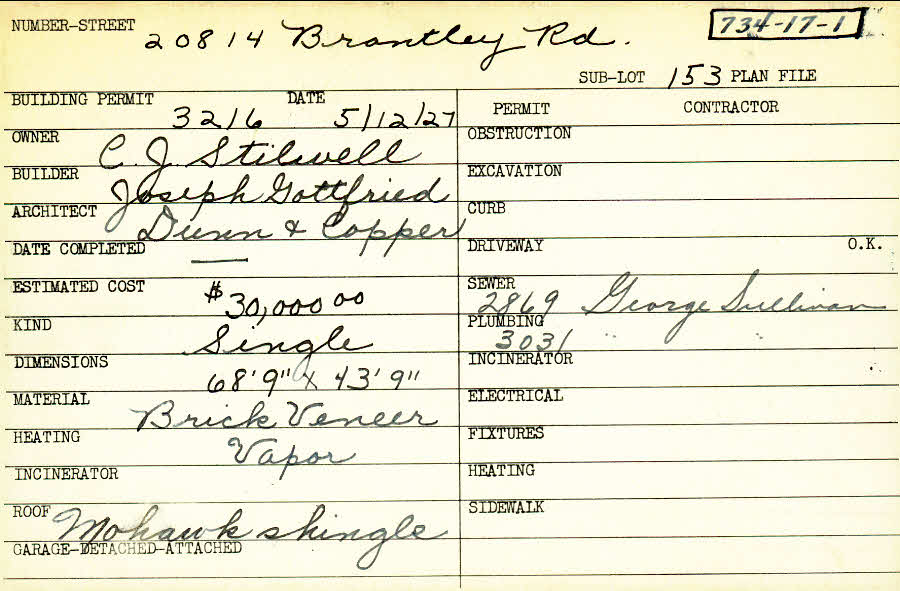 NUMBER-STREET 20814 Brantley Rd. 734-17-1
SUB-LOT 153 PLAN FILE
BUILDING PERMIT 3216 DATE 5/12/27
PERMIT CONTRACTOR
OWNER C. J. Stilwell
OBSTRUCTION
BUILDER Joseph Gottfried
EXCAVATION
ARCHITECT Dunn & Copper
CURB
DATE COMPLETED —
DRIVEWAY O.K.
ESTIMATED COST $30,000 00
SEWER 2869 George Sullivan
KIND Single
PLUMBING 3031 " "
DIMENSIONS 68'9" x 43'9"
INCINERATOR
MATERIAL Brick Veneer
ELECTRICAL
HEATING Vapor
FIXTURES
INCINERATOR
HEATING
ROOF Mohawk shingle
SIDEWALK
GARAGE-DETACHED-ATTACHED